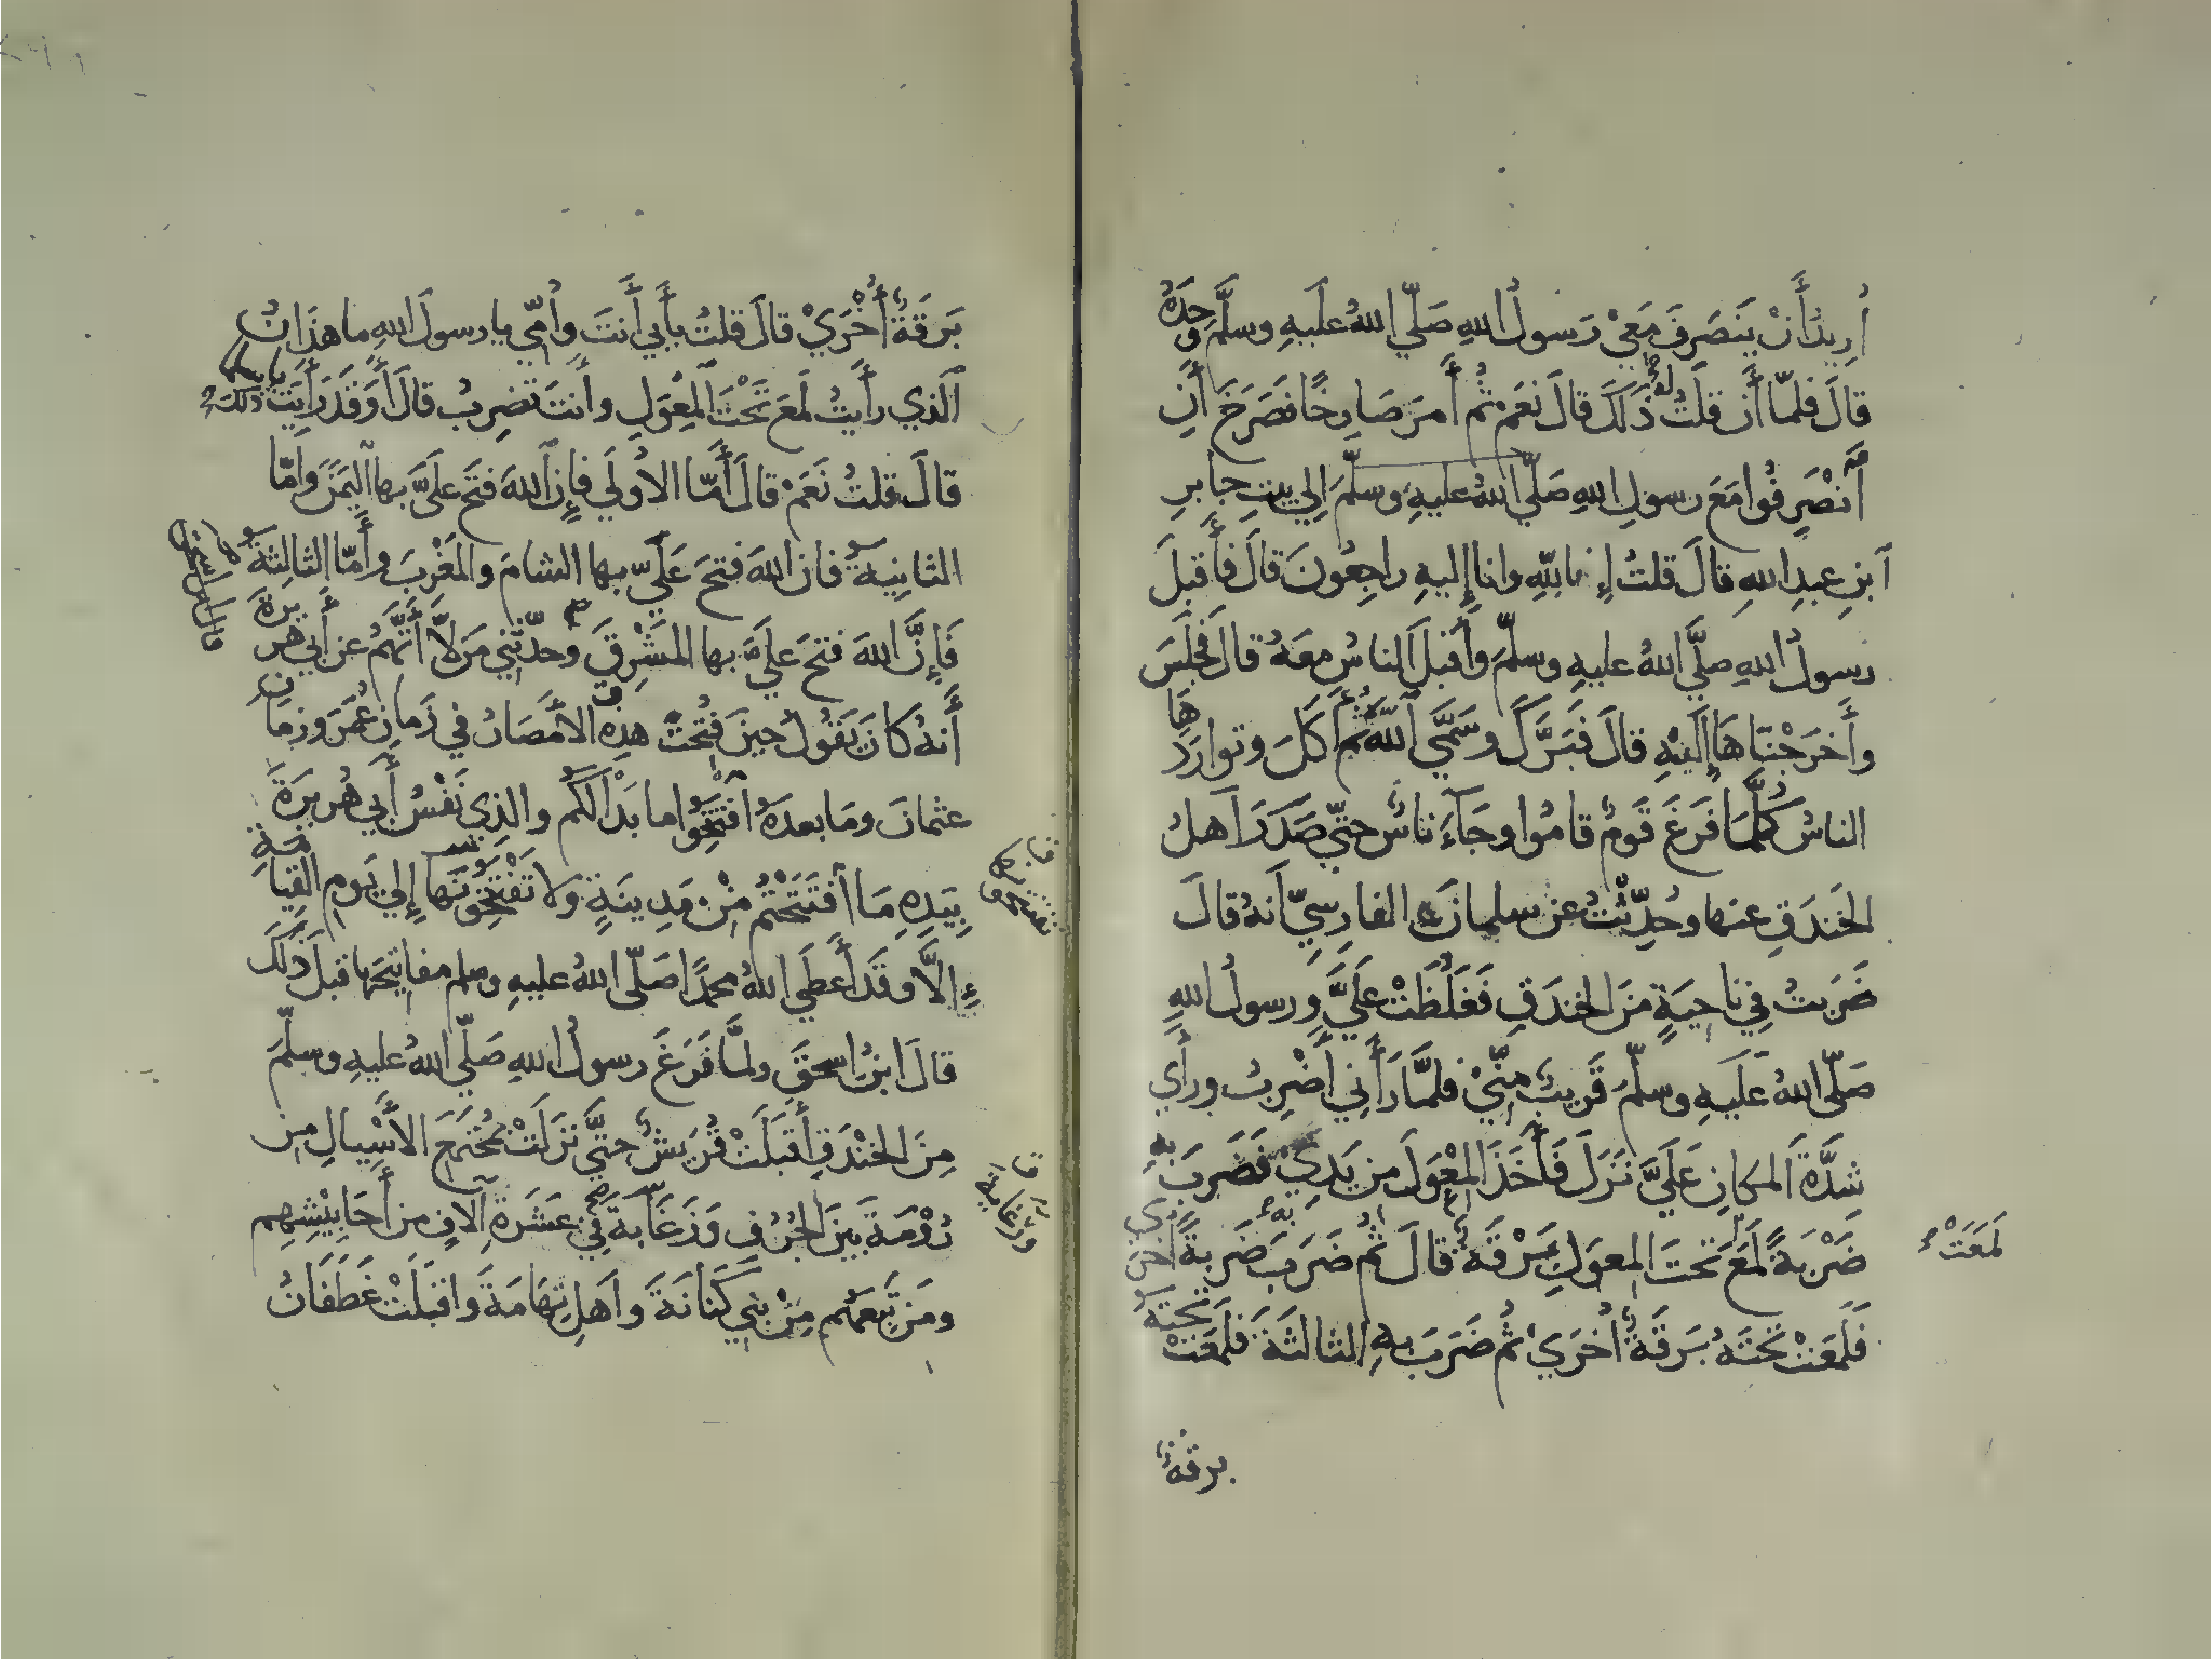 أُرِيدُ أَنْ يَنصَرِفَ مَعِيْ رَسولُ اللهِ صَلَّي اللهُ عَلَيهِ وسلَّمَ وحِدَهُ
قالَ فلمّا أَن قلتُ لهُ ذَلكَ قالَ نعَمْ ثُم أَمرَ صَارِخًا فصَرَخَ أَنِ
ٱنْصَرِفُوا مَعَ رسولِ اللهِ صَلَّي اللهُ عليهِ وسلَّمَ إِلي بيتِ جابرِ
ٱبنِ عبدِ اللهِ قالَ قلتُ إِنا للهِ وانا إِليهِ راجِعُونَ قالَ فأَقبلَ
رسولُ اللهِ صلَّي اللهُ عليهِ وسلَّمَ وأَقبلَ الناسُ معَهُ قالَ فجلَسَ
وأَخرَجْنَاهَا إِلَيْهِ قالَ فَبَرَّكَ وسَمَّي ٱللهَ ثُمَّ أَكَلَ وتوارَدَهَا
الناسُ كُلَّمَا فَرَغَ قَومٌ قامُوا وجَآءَ ناسٌ حتّي صَدَرَ أَهلُ
الخَندَقِ عنها وحُدِّثْتُ عن سلمانَ الفارِسِيِّ أَنهُ قالَ
ضَرَبتُ فِي ناحِيَةٍ منَ الخندَقِ فَغَلُظَتْ عَلَيَّ ورسولُ اللهِ
صَلّى اللهُ عَلَيهِ وسلَّمَ قَرِيبٌ مِنِّيْ فلمَّا رَأَنِي أَضْرِبُ ورأَي
شِدَّةَ المَكانِ عَلَيَّ نَزَلَ فَأَخَذَ المِعْوَلَ مِن يَدِيْ فَضَرَبَ بهِ
ضَرْبَةً لَمَعَ تحتَ المِعوَلِ بَرْقَةٌ قالَ ثُم ضَرَبَ بهِ ضَربةً أُخرَي
لَمَعَتْ
فَلَمَعَتْ تَحتَهُ بَرقَةٌ أُخرَيْ ثُم ضَرَبَ بهِ الثالثَةَ فلَمَعَتْ تَحتَهُ
برقةٌ
بَرقَةٌ أُخْرَيْ قالَ قلتُ بأَبي أَنتَ وأُمّي يا رسولَ اللهِ ما هذَا
ٱلّذي رأَيتُ لَمَعَ تَحْتَ ٱلمِعْوَلِ وأَنتَ تضرِبُ قالَ أَوَقَد رَأَيتَ ذلكَ يا سلمانُ
قالَ قلتُ نَعَمْ قالَ أَمّا الاُولَي فإِنَّ ٱللهَ فتَحَ عَلَيَّ بها ٱليَمَنَ وأَمّا
الثانِيةُ فان اللهَ فتحَ عَلَيَّ بها الشامَ والمَغْرِبَ وأَمّا الثالِثةُ
فَإِنَّ اللهَ فتحَ عَلَيَّ بها المَشْرِقَ وحدّثَنِي مَن لَا أَتَّهِمُ عن أَبي هُريرةَ
أَنهُ كانَ يَقُولُ حينَ فُتِحَتْ هذِهِ الأَمْصَارُ في زَمانِ عُمَرَ وزَمانِ
عثمانَ ومَا بعدَهُ ٱفتَتِحُوا ما بَدَا لَكُم والذِي نَفسُ أَبي هُريرَةَ
بِيَدِهِ مَا ٱفتَتَحْتُم مِنْ مَدِينَةٍ وَلا تَفْتَتِحُونَها إِلي يَومِ القِيامَةِ
إِلَّا وقَد أَعطَي اللهُ محمدًا صَلّى اللهُ عليهِ وسلم مفاتِيحَها قبلَ ذلكَ
قالَ ابنُ اسحقَ ولمَّا فَرَغَ رسولُ اللهِ صَلَّي اللهُ عليهِ وسلَّمَ
مِنَ الخَنْدَقِ أَقبَلَتْ قُرَيشٌ حتَّي نزَلَتْ بمُجتَمَعِ الأَسْيالِ مِن
رُوْمَةَ بينَ الجُرُفِ وَزَغَابةَ فِي عَشَرَةِ آلافٍ من أَحَابِيْشِهِم
ومَن تَبِعَهُم مِنْ بَنِي كَنَانَةَ وأَهلِ تِهَامَةَ واقبَلَتْ غَطَفَانُ